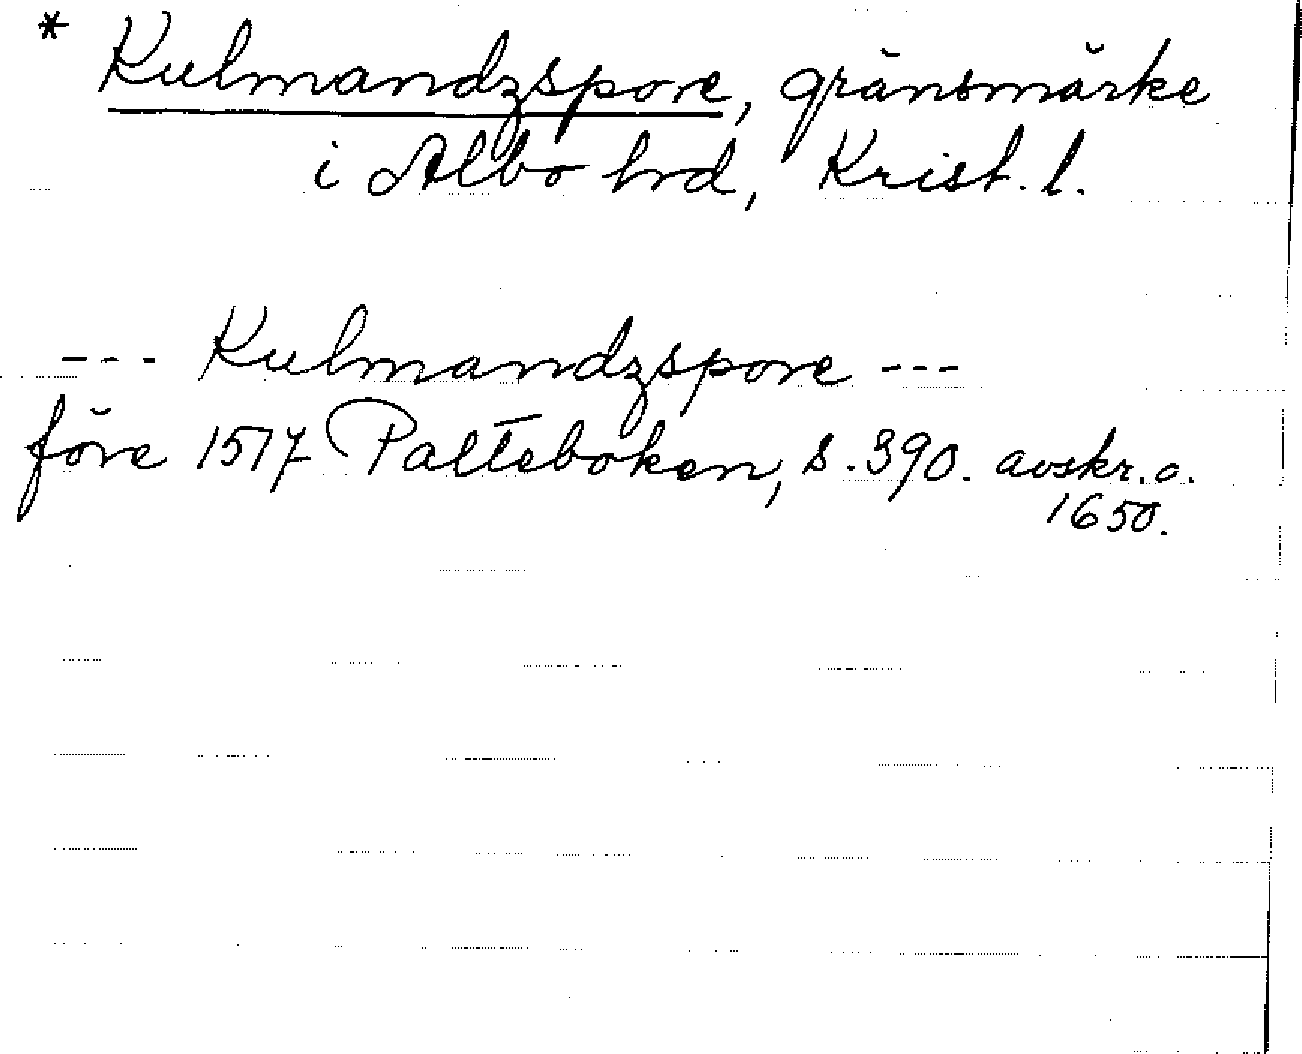 * Kulmandzspore, gränsmärke
i Albo hrd, Krist. l.
--- Kulmandzspore ---
före 1517 Palteboken, s. 390. avskr. o.
1650.